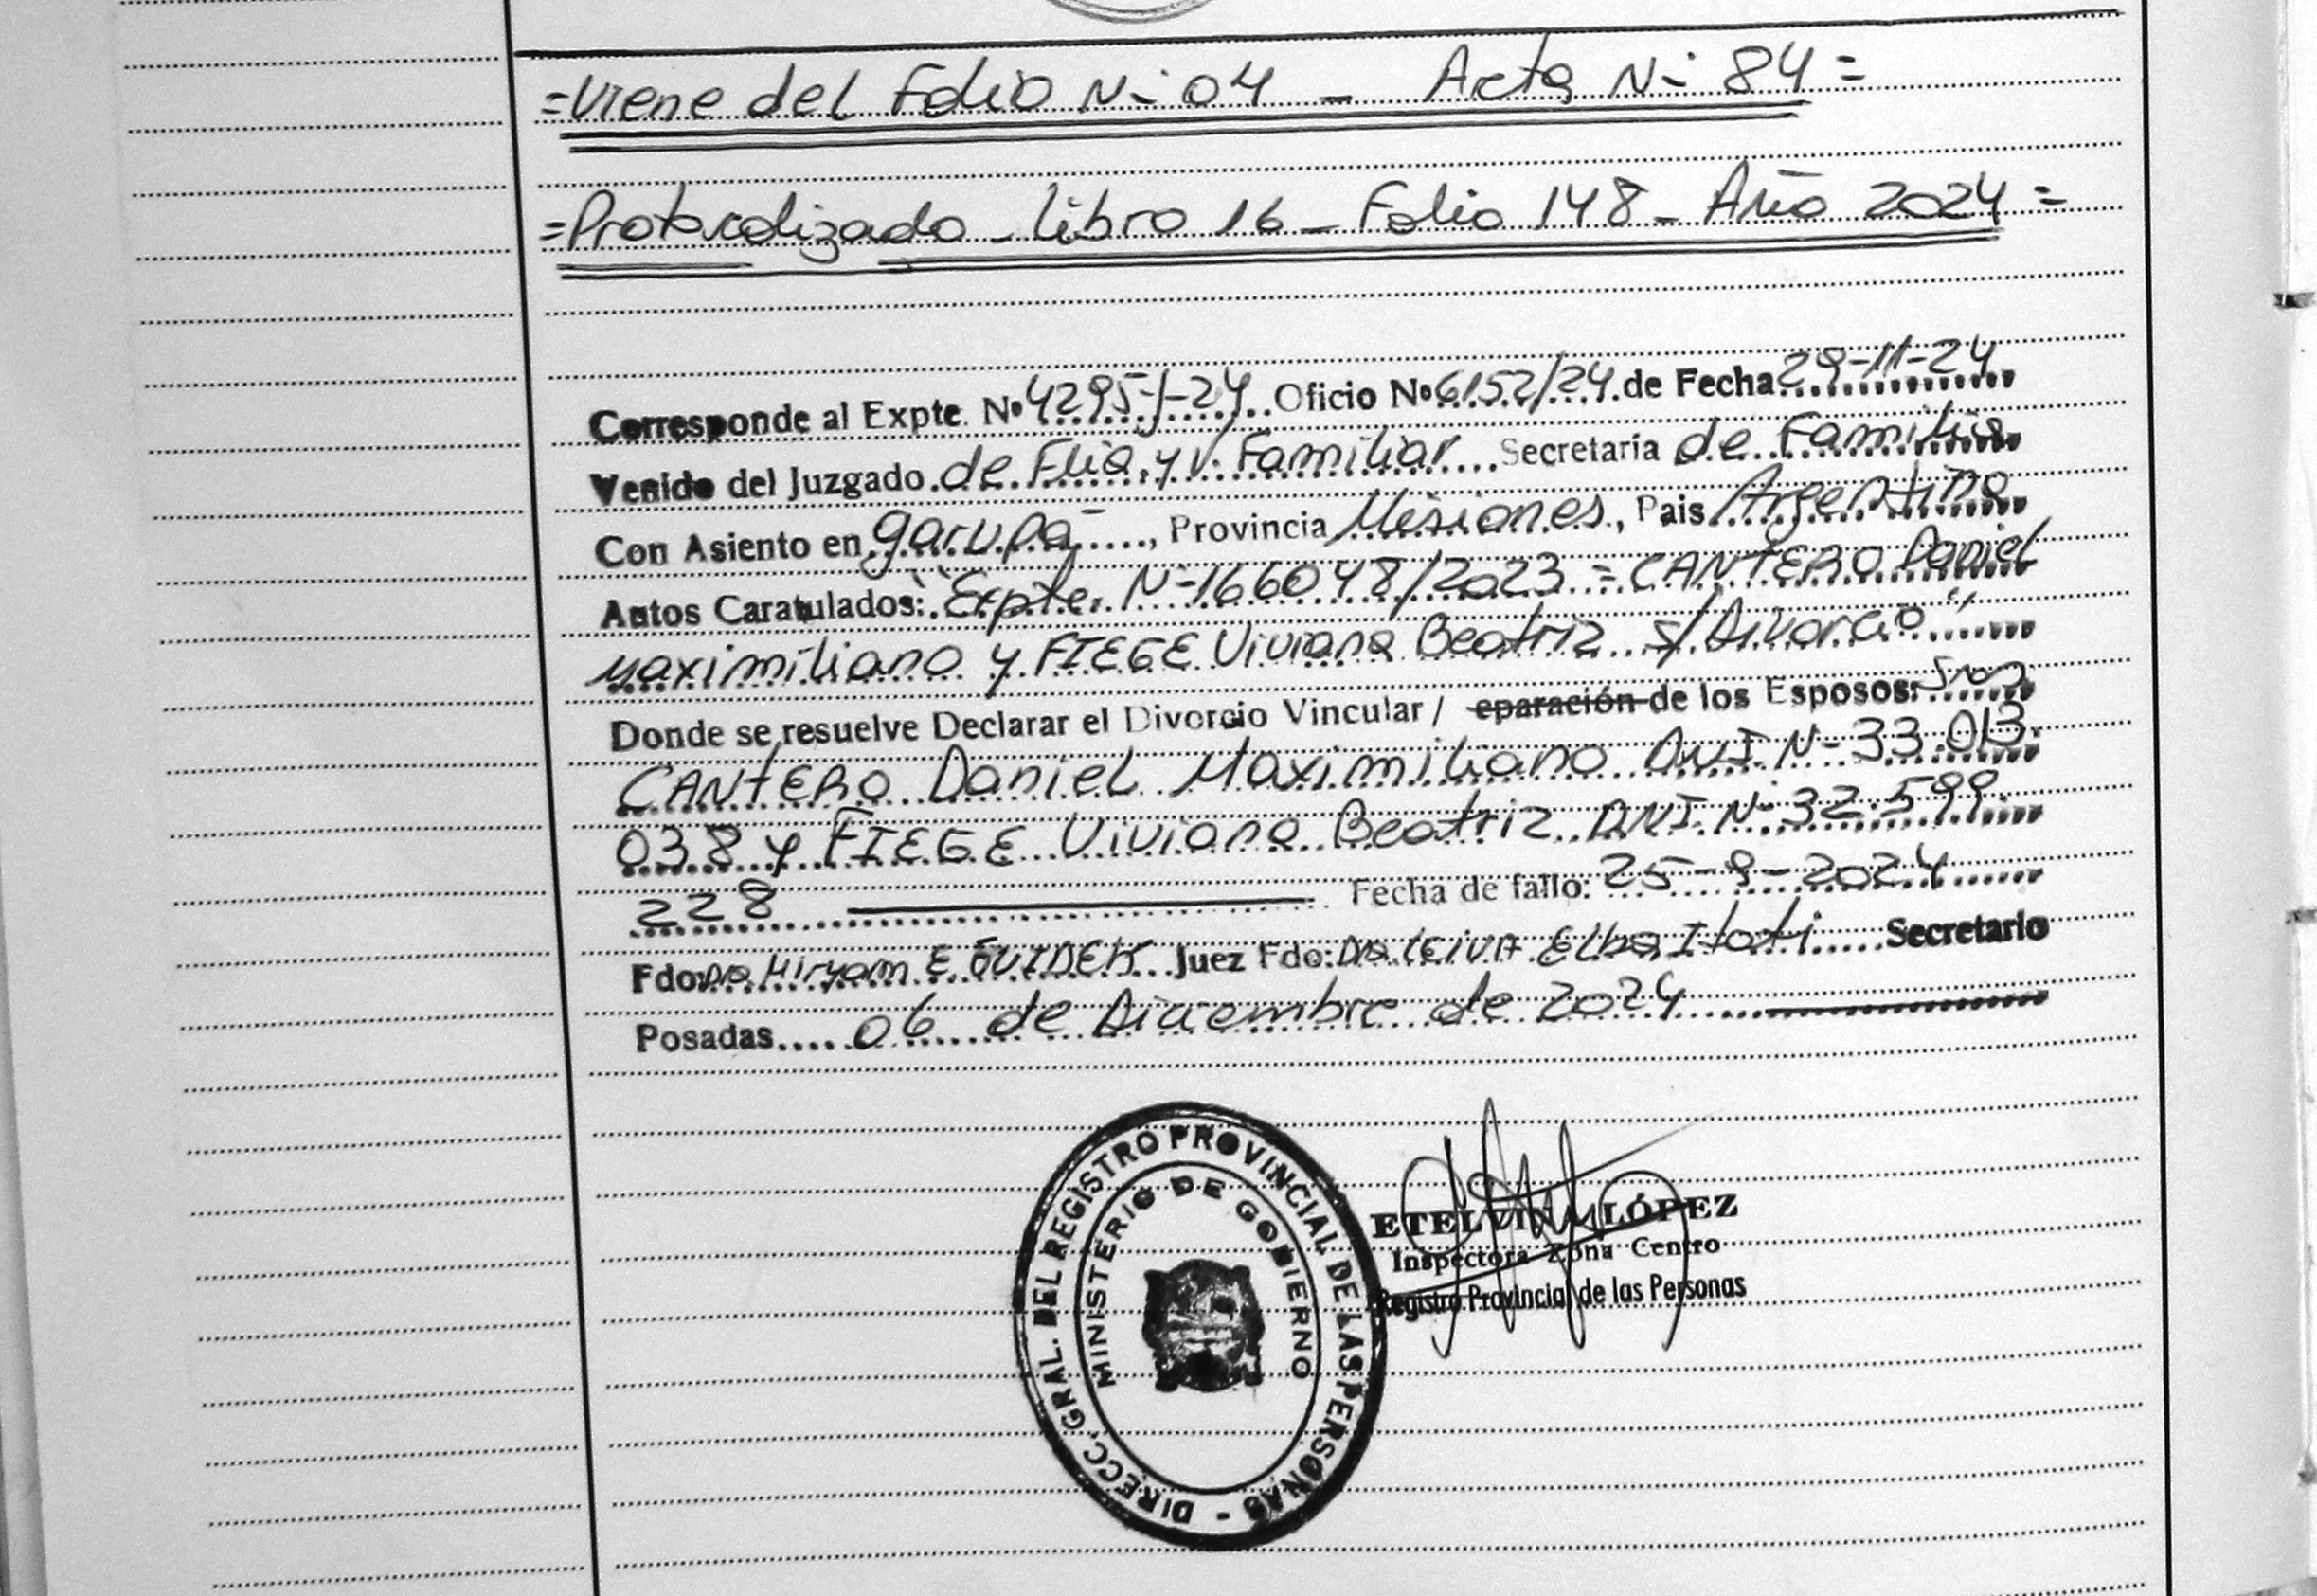 =Viene del Folio N- 04 - Acta N- 84=
=Protocolizado - Libro 16 - Folio 148 - Año 2024=
Corresponde al Expte. Nº 4295-J-24 Oficio Nº 6152/24 de Fecha 29-11-24
Venido del Juzgado de Flia. y V. Familiar Secretaría de Familia
Con Asiento en Garupá, Provincia Misiones, Pais Argentina
Autos Caratulados: "Expte. N-166048/2023 = CANTERO Daniel
Maximiliano y FIEGE Viviana Beatriz s/Divorcio"
Donde se resuelve Declarar el Divorcio Vincular / eparación de los Esposos: Sres
CANTERO Daniel Maximiliano DNI N- 33.013.
038 y FIEGE Viviana Beatriz DNI N- 32.599.
228 Fecha de fallo: 25-9-2024
Fdo: Dra Miryam E. Juez Fdo: Dra LEIVA Elba Itatí Secretario
Posadas 06 de Diciembre de 2024
DIRECC. GRAL. DEL REGISTRO PROVINCIAL DE LAS PERSONAS -
MINISTERIO DE GOBIERNO
LÓPEZ
Inspectora Zona Centro
Registro Provincial de las Personas